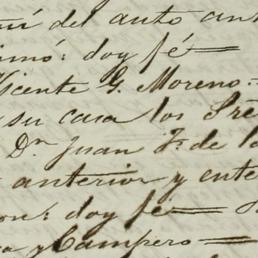 uí del auto ant
imó: doy fé=
Vicente G. Moreno.=
su casa los Sre
Dn Juan F. de la
anterior y ente
on: doy fé=
a y Campero=